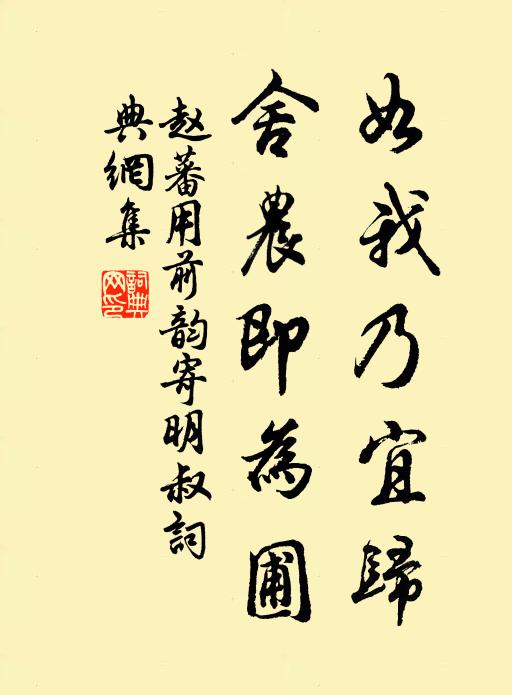 如我乃宜歸
舍農即為圃
赵蕃用前韵寄明叔詞
典網集
詞典網印